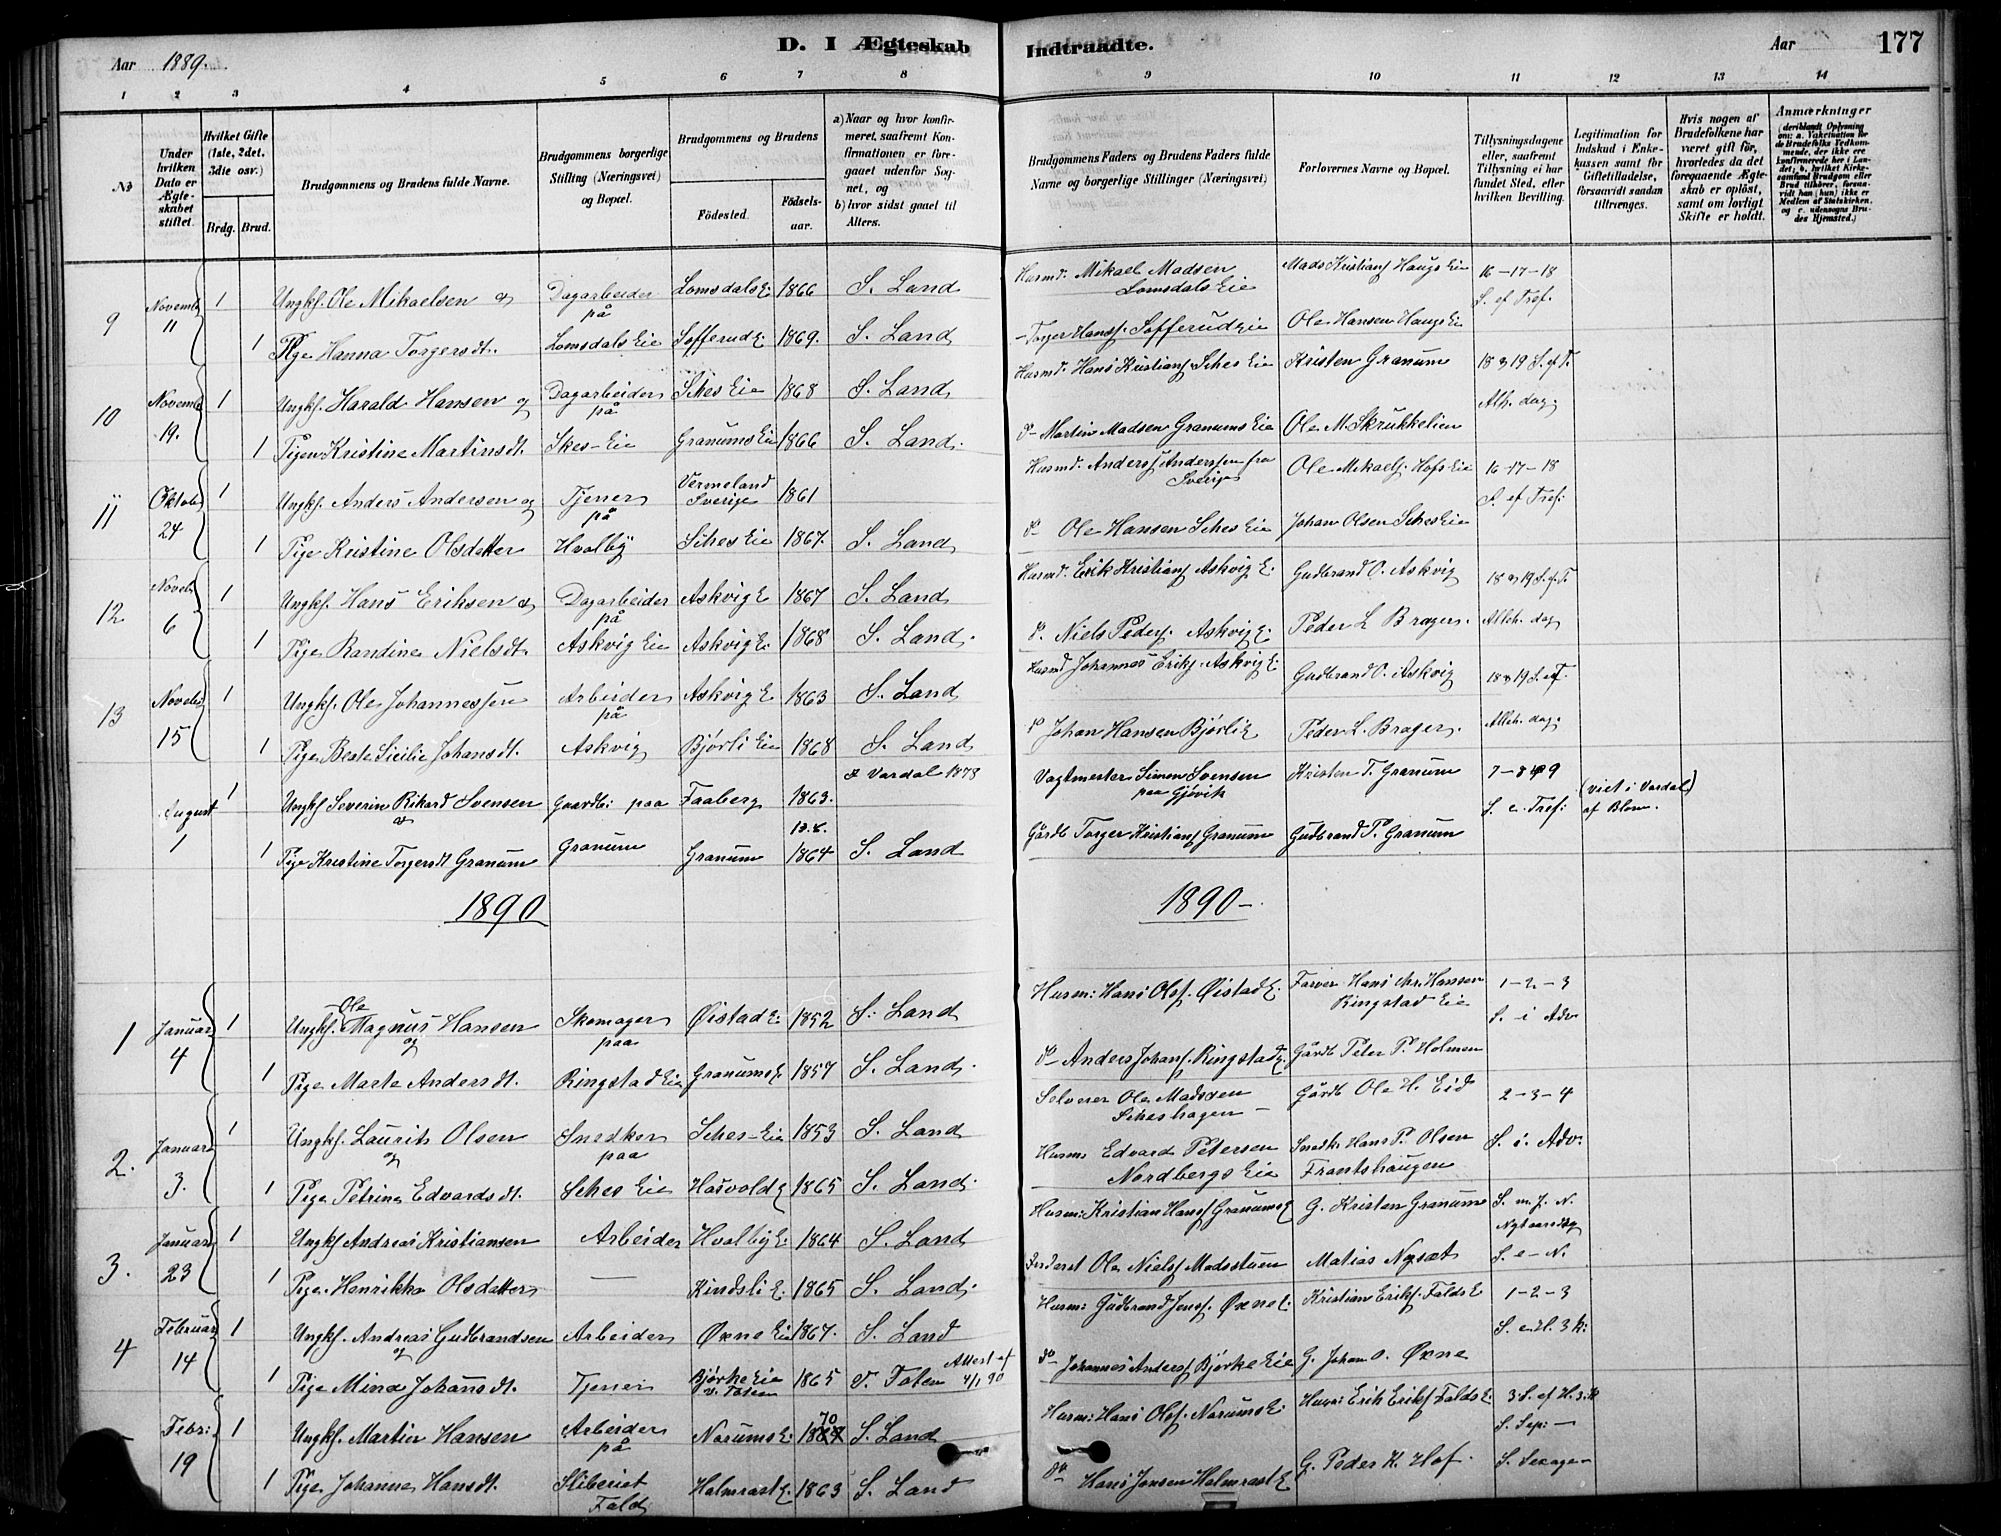 D. I Ægteskab Indtraadte.
177
Aar 1889.
Aar
1 2 3 4 5 6 7 8 9 10 11 12 13 14
No
Under hvilken Dato er Ægteskabet stiftet.
Hvilket Gifte (1ste, 2det, 3die osv.)
Brdg. Brud.
Brudgommens og Brudens fulde Navne.
Brudgommens borgerlige Stilling (Næringsvei) og Bopæl.
Brudgommens og Brudens
Födested.
Födselsaar.
a) Naar og hvor konfirmeret, saafremt Konfirmationen er foregaaet udenfor Sognet, og
b) hvor sidst gaaet til Alters.
Brudgommens Faders og Brudens Faders fulde Navne og borgerlige Stillinger (Næringsvei)
Forlovernes Navne og Bopæl.
Tillysningsdagene eller, saafremt Tillysning ei har fundet Sted, efter hvilken Bevilling.
Legitimation for Indskud i Enkekassen samt for Giftetilladelse, forsaavidt saadan tiltrænges.
Hvis nogen af Brudefolkene har været gift för, hvorledes da det foregaaende Ægteskab er oplöst, samt om lovligt Skifte er holdt.
Anmærkninger
(deriblandt Oplysning om: a. Vakcination for de Brudefolks Vedkommende, der ikke ere konfirmerede her i Landet; b. hvilket Kirkesamfund Brudgom eller Brud tilhörer, forsaavidt han (hun) ikke er Medlem af Statskirken, og c. udensogns Brudes Hjemsted.)
9 Novemb 11 1 Ungkf. Ole Mikaelsen og Dagarbeider på Lomsdals E. 1866 S. Land Husmd. Mikael Madsen Lomsdals Eie Mads Kristians Haugs Eie 16-17-18 S. ef Tref.
1 Pige Hanna Torgersdt. Lomsdals Eie Sofferud E. 1869. S. Land - Torger Hanss. Sofferud eie Ole Hansen Haugs Eie
10 Novemb 19. 1 Ungkf. Harald Hansen og Dagarbeider på Sches Eie 1868 S. Land Husmd. Hans Kristians. Sches Eie Kristen Granum 18 & 19 S. ef T.
1 Pigen Kristine Martinsdt. Skes-Eie Granums Eie 1866 S. Land. do Martin Madsen Granums Eie Ole M. Skrukkelien Alh. dag.
11 Oktob 24 1 Ungkf. Anders Andersen og Tjener på Vermeland Sverige 1861 Husmd. Anders Anderssen fra Sverige Ole Mikaels. Hofs Eie 16-17-18 S. ef Tref:
1 Pige Kristine Olsdatter Hvalby Sches Eie 1867. S. Land do Ole Hansen Sches Eie Johan Olsen Sches Eie
12 Noveb 6 1 Ungkf. Hans Eriksen & Dagarbeider på Askvig E 1867 S. Land Husmd. Erik Kristians Askvig E. Gudbrand O. Askvig 18 & 19 S. ef T.
1 Pige Randine Nielsdt. Askvig Eie Askvig E. 1868 S. Land. do. Niels Peders. Askvig E. Peder L Brager. Alleh. dag
13 Novebr 15 1 Ungkf. Ole Johannessen Arbeider på Askvig E 1863 S. Land Husmd Johannes Eriks. Askvig E. Gudbrand O. Askvig 18 & 19 S. ef T.
1 Pige Beate Sicilie Johansdt. Askvig Bjørli Eie 1868 S. Land do Johan Hansen Bjørli E Peder L. Brager. Alleh. dag.
August 1 1 Ungkf Severin Rikard Svensen & Gaardb: paa Faaberg 1863. Vardal 1878 Vagtmester Simen Svensen paa Gjøvik Kristen T. Granum 7-8 & 9 S. e. Tref: (viet i Vardal af Blom.
1 Pige Kristine Torgersdt Granum Granum Granum 1864 S. Land Gårdb Torger Kristians Granum Gudbrand P. Granum
1890 1890-
1 Januar 4 1 Ungkf. Ole Magnus Hansen og Skomager paa Øistad E. 1852 S. Land Husm: Hans Ols. Øistad E. Farver Hans Chr. Hansen Ringstad Eie 1-2-3 S. i Adv
1 Pige Marte Andersdt. Ringstad Eie Granums E. 1857 S. Land. do Anders Johans. Ringstad E. Gårdb Peter P. Holmen
2. Januar 3. 1 Ungkf. Laurits Olsen og Snedker paa Sches-Eie 1853 S. Land Selveier Ole Madssen Scheshagen - Gårdb Ole H. Eid 2-3-4
1 Pige Petrine Edvardsdt. Sches Eie Hasvold E 1865 S. Land. Husm Edvard Petersen Nordbergs Eie Snedk: Hans P. Olsen Frantshaugen S. i. Adv.
3. Januar 23 1 Ungkf Andreas Kristiansen Arbeider Hvalby E. 1864 S. Land Husm: Kristian Hans. Granums E G. Kristen Granum S. m. J. N. Nytaarsdag
1 Pige Henrikke Olsdatter — Kindsli E. 1865 S. Land. Inderst Ole Niels Madsstuen Matias Nysæt S. e- N.
4 Februar 14 1 Ungkf. Andreas Gudbrandsen og Arbeider Øxne Eie 1867. S. Land Husm: Gudbrand Jens. Øxne E. Kristian Eriks. Falds E 1-2-3 S. e H. 3 K:
1 Pige Mina Johansdt. Tjener Bjørke Eie V. Toten 1865 V. Toten Attest af 4/1 90 do Johannes Anders. Bjørke Eie G. Johan O. Øxne
Febr: 19 1 Ungkf. Martin Hansen Arbeider på Narums E. 1870 S. Land Husm: Hans Ols. Narums E. Husm: Erik Eriks Falds E. 3 S. ef H. 3. K S. Sep: -
1 Pige Johanne Hansdt. Sliberiet Fald Halmrast E. 1863 S. Land do Hans Jensen Halmrast E G. Peder K. Hof. S. Sexage-